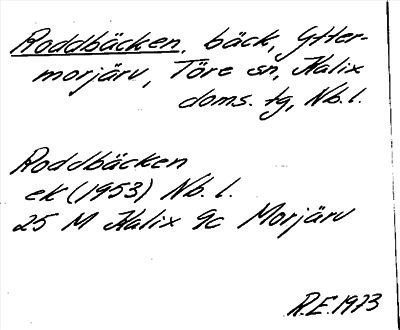 Roddbäcken, bäck, Ytter-
morjärv, Töre sn, Kalix
doms. tg, Nb. l.
Roddbäcken
ek (1953) Nb. l.
25 M Kalix 9c Morjärv
R.E. 1973